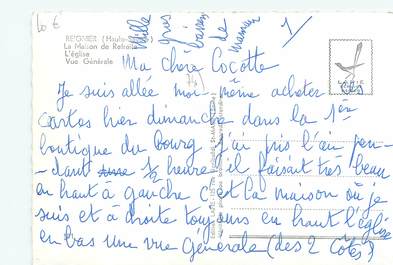 10 €
REIGNIER (Haute-
La Maison de Retraite
L'église
Vue Générale
Mille
gros
baisers
de
maman
1
Ma chère Cocotte
Je suis allée moi-même acheter ces
cartes hier dimanche dans la 1ère
boutique du Bourg j'ai pris l'air pen-
dant 1/2 heure il faisait très beau
en haut à gauche c'est la maison où je
suis et à droite toujours en haut l'église
en bas une vue générale (des 2 côtés)